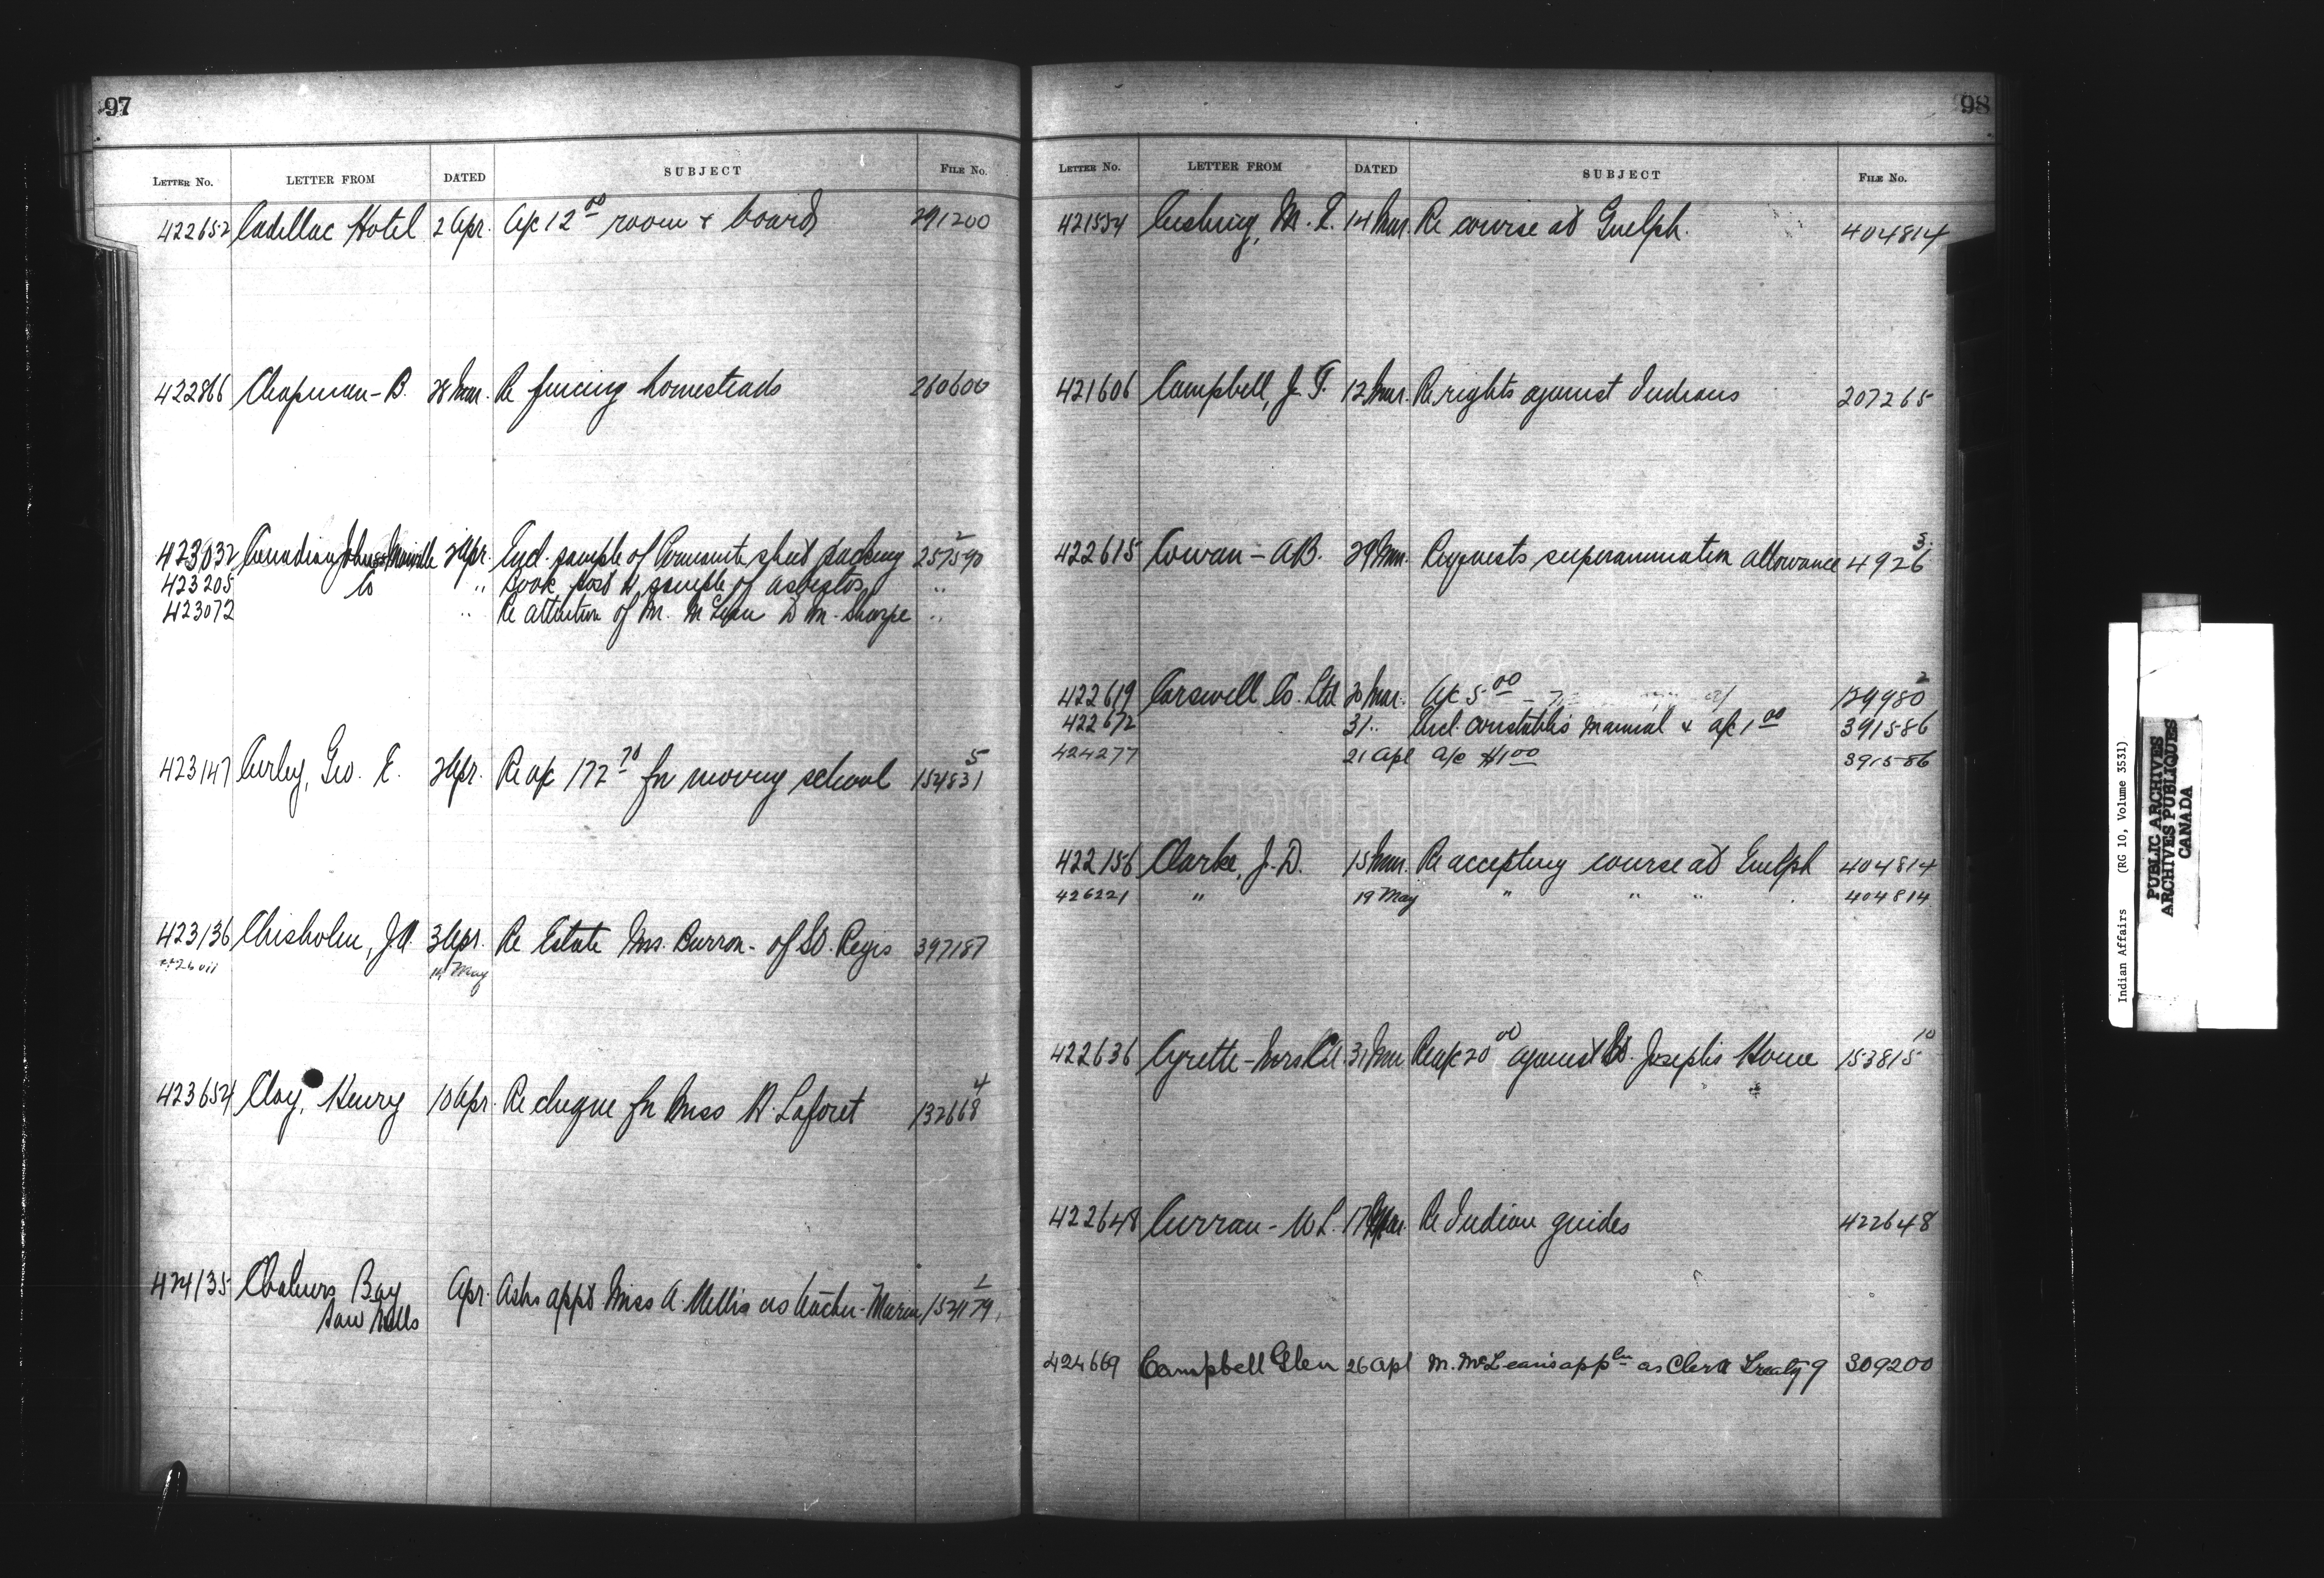 97
LETTER No. LETTER FROM DATED SUBJECT FILE No.
422652 Cadillac Hotel 2 Apr. A/c 12 00 room & board 291200
422866 Chapman - B. 28 Mar. Re fencing homesteads 260600
423032 Canadian Johns Manville 2 Apr. Encl. sample of sheet packing 257590 2
423205 Co " " sample of asbestos "
423072 " Re attention of Mr. McLean D M. Sharpe "
423147 Curley, Geo. E. 2 Apr. Re a/c 172 70 for moving school 154831 5
423136 Chisholm, J.A. 3 Apr. Re Estate Mrs. Burron - of St. Regis 397187
14 May
423654 Clay, Henry 10 Apr. Re cheque for Miss R. Laforet 132668 4
424135 Chaleurs Bay Apr. Asks appt Miss A. as teacher - Maria 152179 1
Saw Mills
98
LETTER No. LETTER FROM DATED SUBJECT FILE No.
421534 Cushing, M. 14 Mar. Re course at Guelph. 404814
421606 Campbell, J. T. 12 Mar. Re rights against Indians 207265
422615 Cowan - A B. 29 Mar. Requests superannuation allowance 4926 3
422619 Carswell Co. Ltd 20 Mar. A/c 5 00 129980 2
422672 31 " Encl. constable's manual & a/c 1 00 391586
424277 21 Apl a/c $1 00 391586
422156 Clarke, J. D. 15 Mar. Re accepting course at Guelph 404814
426221 " 19 May " " " 404814
422636 Cyrette - Mrs 31 Mar Re a/c 20 00 against St. Joseph's Home 153815 10
422648 Curran - W L. 17 Mar. Re Indian guides 422648
424669 Campbell Glen 26 Apl M. McLean's appln as Clerk Treaty 9 309200
Indian Affairs (RG 10, Volume 3531)
PUBLIC ARCHIVES
ARCHIVES PUBLIQUES
CANADA